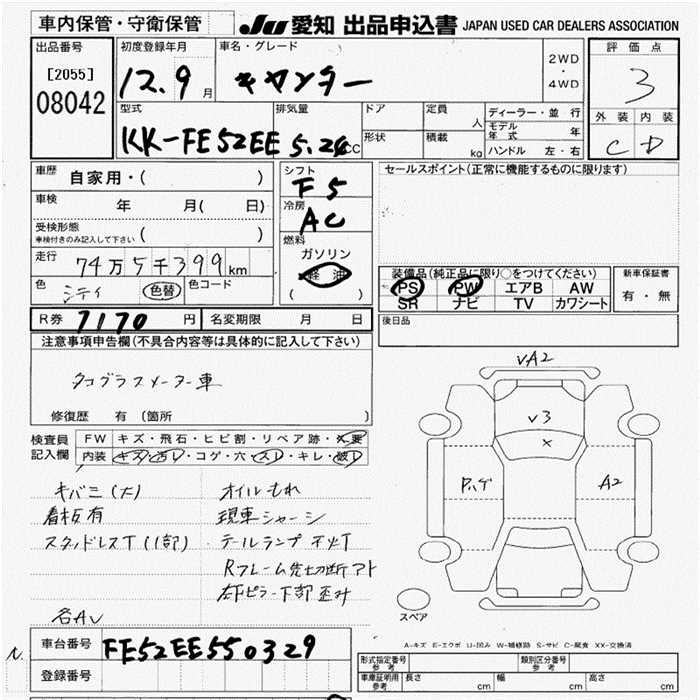 車内保管・守衛保管
JU 愛知 出品申込書 JAPAN USED CAR DEALERS ASSOCIATION
出品番号
[2055]
08042
初度登録年月
12.9月
車名・グレード
キャンター
2WD
・
4WD
評価点
3
外装 内装
C D
型式
KK-FE52EE
排気量
5.2 cc
ドア
形状
定員
人
積載
kg
ディーラー・並行
モデル年式 年
ハンドル 左・右
車歴
自家用・( )
車検
年 月( 日)
受検形態
車検付きのみ記入して下さい ( )
走行
74万5千399km
色
シテイ
色替
色コード
シフト
F5
冷房
AC
燃料
ガソリン
軽油
( )
セールスポイント(正常に機能するものに限ります)
装備品(純正品に限り○をつけてください)
PS PW エアB AW
SR ナビ TV カワシート
新車保証書
有・無
R券 7170円 名変期限 月 日
後日品
注意事項申告欄(不具合内容等は具体的に記入して下さい)
タコグラフメーター車
修復歴 有 (箇所 )
検査員
記入欄
FW キズ・飛石・ヒビ割・リペア跡・×要
内装 キズ・汚レ・コゲ・穴・スレ・キレ・破レ
キバミ(大)
看板有
スタッドレスT(1部)
各AU
オイルもれ
現車シャーシ
テールランプ 不灯
Rフレーム先切断アト
右下ピラー下部歪み
VA2
V3
×
Pハゲ
A2
スペア
A-キズ E-エクボ U-凹み W-補修跡 S-サビ C-腐食 XX-交換済
車台番号 FE52EE550329
登録番号
形式指定番号
参考
類別区分番号
参考
車庫証明用
参考
長さ cm 幅 cm 高さ cm